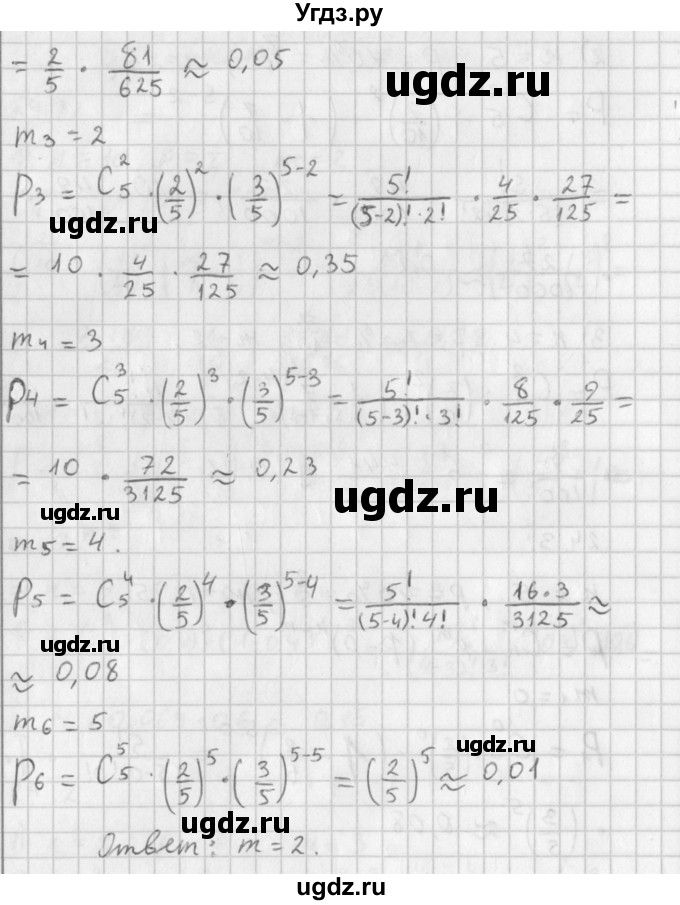 Угдз.ру
= 2/5 · 81/625 ≈ 0,05
ugdz.ru
m₃ = 2
P₃ = C₅² · (2/5)² · (3/5)⁵⁻² = 5!/((5-2)!·2!) · 4/25 · 27/125 =
ugdz.ru
= 10 · 4/25 · 27/125 ≈ 0,35
m₄ = 3
P4 = C₅³ · (2/5)³ · (3/5)⁵⁻³ = 5!/((5-3)!·3!) · 8/125 · 9/25 =
= 10 · 72/3125 ≈ 0,23
ugdz.ru
ugdz.ru
m₅ = 4.
P₅ = C₅⁴ · (2/5)⁴ · (3/5)⁵⁻⁴ = 5!/((5-4)!4!) · 16·3/3125 ≈
ugdz.ru
≈ 0,08
m₆ = 5
ugdz.ru
P₆ = C₅⁵ · (2/5)⁵ · (3/5)⁵⁻⁵ = (2/5)⁵ ≈ 0,01
ugdz.ru
Ответ: m = 2.
ugdz.ru
ugdz.ru